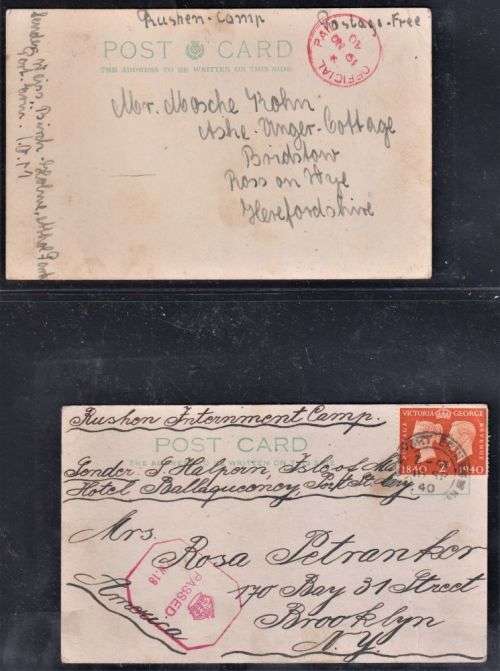 Rushen-Camp Postage-Free
POST CARD
THE ADDRESS TO BE WRITTEN ON THIS SIDE
OFFICIAL PAID
19 NO
40
Mr. Mosche Krohn
Ashe-Unger-Cottage
Bridstow
Ross on Wye
Herefordshire
Sender Weiss Birch
Port Erin. I.O.M
Rushen Internment Camp.
POST CARD
THE ADDRESS TO BE WRITTEN ON THIS SIDE
POSTAGE VICTORIA GEORGE REVENUE
1840 2d 1940
40
Sender J. Halpern, Isle of Man
Hotel Ballaqueeney, Port St. Mary
Mrs.
Rosa Petranker
170 Bay 31 Street
Brooklyn
N.Y.
America
PASSED